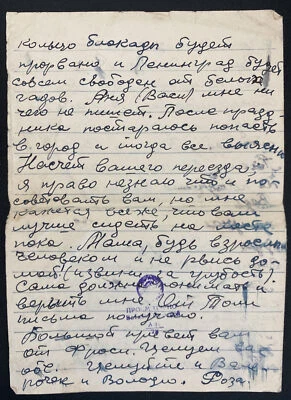 кольцо блокады будет
прорвано и Ленинград будет
совсем свободен от белых
гадов. Аня (Васи) мне ни
чего не пишет. После празд
ника постараюсь попасть
в город и тогда все выясню
Насчет вашего переезда,
я право незнаю что и по
советовать вам, но мне
кажется все же, что вам
лучше сидеть на месте
пока. Мама, будь взрослым
человеком и не рвись до
мой (извини за грубость)
Сама должна понимать и
верить мне От Толи
письма получаю.
Большой привет вам
от Фроси. Целуем вас
обе. Целуйте и
и Володю. Роза.